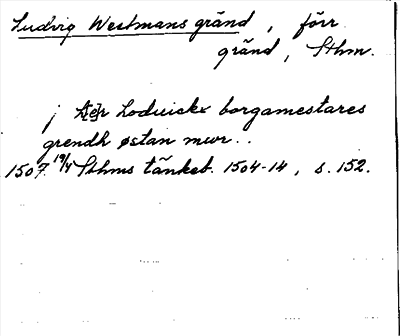 Ludvig Westmans gränd, förr
gränd, Sthm.
j her Loduickx borgamestares
grendh østan mwr..
1507 19/4 Sthms tänkeb. 1504-14, s. 152.